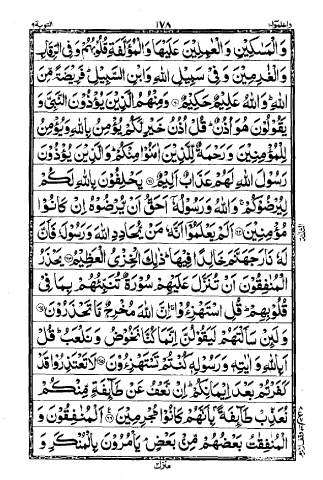 واعلموا ١٠ ١٧٨ التوبة ٩
وَالْمَسٰكِیْنِ وَالْعٰمِلِیْنَ عَلَیْهَا وَالْمُؤَلَّفَةِ قُلُوْبُهُمْ وَفِی الرِّقَابِ
وَالْغٰرِمِیْنَ وَفِیْ سَبِیْلِ اللّٰهِ وَابْنِ السَّبِیْلِ ؕ فَرِیْضَةً مِّنَ
اللّٰهِ ؕ وَاللّٰهُ عَلِیْمٌ حَكِیْمٌ ﴿۶۰﴾ وَمِنْهُمُ الَّذِیْنَ یُؤْذُوْنَ النَّبِیَّ وَ
یَقُوْلُوْنَ هُوَ اُذُنٌ ؕ قُلْ اُذُنُ خَیْرٍ لَّكُمْ یُؤْمِنُ بِاللّٰهِ وَیُؤْمِنُ
لِلْمُؤْمِنِیْنَ وَرَحْمَةٌ لِّلَّذِیْنَ اٰمَنُوْا مِنْكُمْ ؕ وَالَّذِیْنَ یُؤْذُوْنَ
رَسُوْلَ اللّٰهِ لَهُمْ عَذَابٌ اَلِیْمٌ ﴿۶۱﴾ یَحْلِفُوْنَ بِاللّٰهِ لَكُمْ
لِیُرْضُوْكُمْ ۚ وَاللّٰهُ وَرَسُوْلُهٗۤ اَحَقُّ اَنْ یُّرْضُوْهُ اِنْ كَانُوْا
مُؤْمِنِیْنَ ﴿۶۲﴾ اَلَمْ یَعْلَمُوْۤا اَنَّهٗ مَنْ یُّحَادِدِ اللّٰهَ وَرَسُوْلَهٗ فَاَنَّ
لَهٗ نَارَ جَهَنَّمَ خَالِدًا فِیْهَا ؕ ذٰلِكَ الْخِزْیُ الْعَظِیْمُ ﴿۶۳﴾ یَحْذَرُ
الْمُنٰفِقُوْنَ اَنْ تُنَزَّلَ عَلَیْهِمْ سُوْرَةٌ تُنَبِّئُهُمْ بِمَا فِیْ
قُلُوْبِهِمْ ؕ قُلِ اسْتَهْزِءُوْا ۚ اِنَّ اللّٰهَ مُخْرِجٌ مَّا تَحْذَرُوْنَ ﴿۶۴﴾
وَلَئِنْ سَاَلْتَهُمْ لَیَقُوْلُنَّ اِنَّمَا كُنَّا نَخُوْضُ وَنَلْعَبُ ؕ قُلْ
اَبِاللّٰهِ وَاٰیٰتِهٖ وَرَسُوْلِهٖ كُنْتُمْ تَسْتَهْزِءُوْنَ ﴿۶۵﴾ لَا تَعْتَذِرُوْا قَدْ
كَفَرْتُمْ بَعْدَ اِیْمَانِكُمْ ؕ اِنْ نَّعْفُ عَنْ طَآئِفَةٍ مِّنْكُمْ
نُعَذِّبْ طَآئِفَةًۢ بِاَنَّهُمْ كَانُوْا مُجْرِمِیْنَ ﴿۶۶﴾ اَلْمُنٰفِقُوْنَ وَ
الْمُنٰفِقٰتُ بَعْضُهُمْ مِّنْۢ بَعْضٍ ۘ یَاْمُرُوْنَ بِالْمُنْكَرِ وَ
منزل